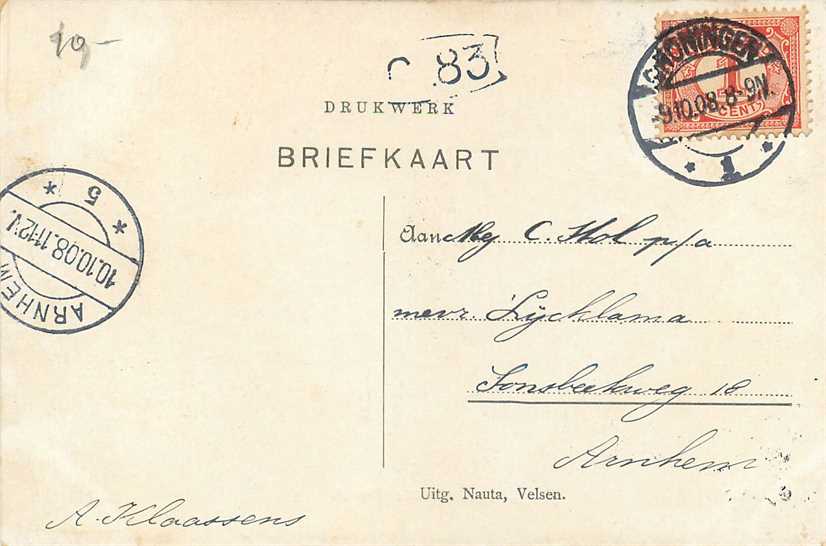 10,-
83
DRUKWERK
BRIEFKAART
GRONINGEN
9.10.08.8-9N.
1
1
CENT
5
10.10.08.11-12V.
ARNHEM
Aan Mej C. Stol p/a
mevr. Lycklama
Sonsbeekweg 18
Arnhem
Uitg. Nauta, Velsen.
A. Klaassens